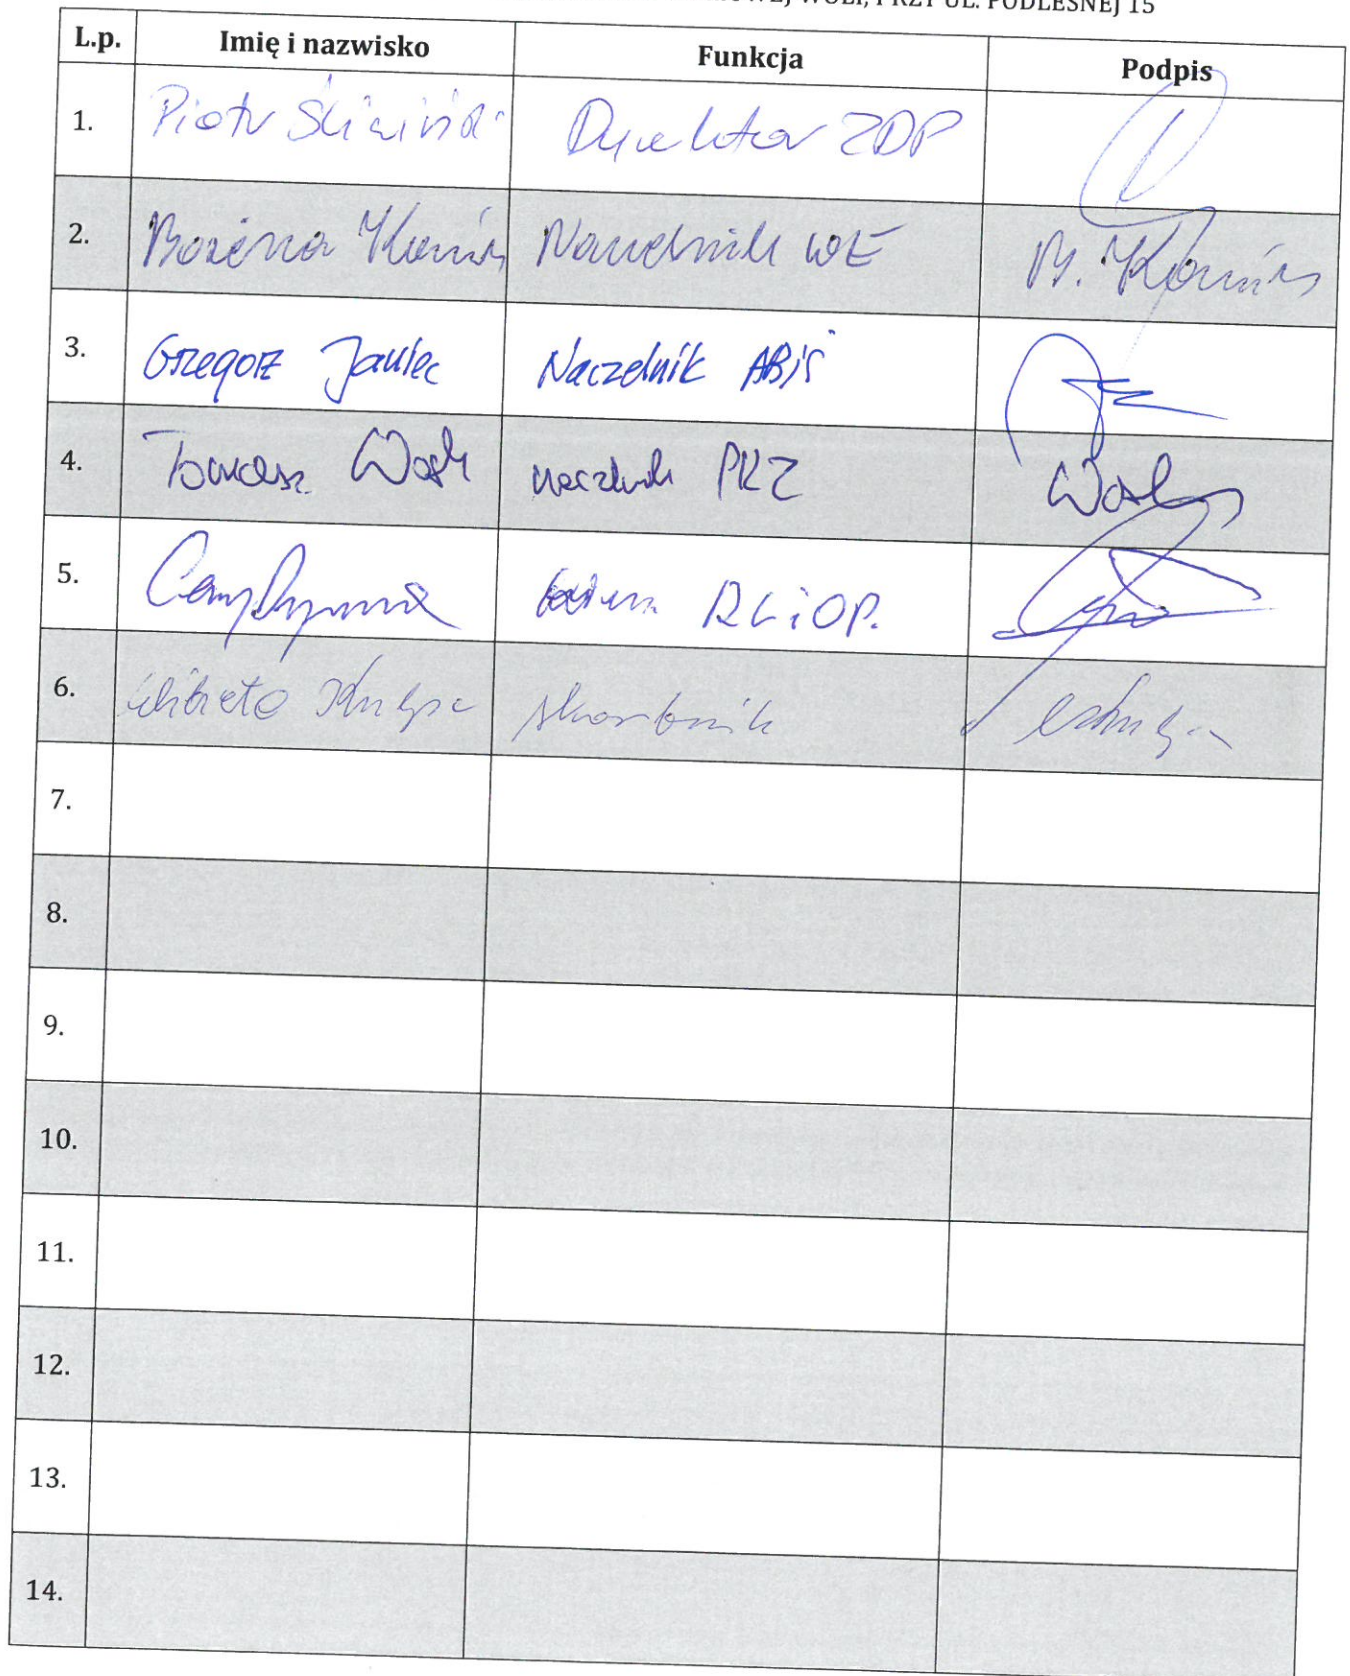 WOLI, PRZY UL. PODLEŚNEJ 15
L.p. Imię i nazwisko Funkcja Podpis
1. Piotr Śliwiński Dyrektor ZDP
2. Bożena Naczelnik WE B.
3. Grzegorz Janiec Naczelnik ABiŚ
4. Tomasz Wosk naczelnik PKZ
5. RLiOP.
6. Elżbieta skarbnik
7.
8.
9.
10.
11.
12.
13.
14.